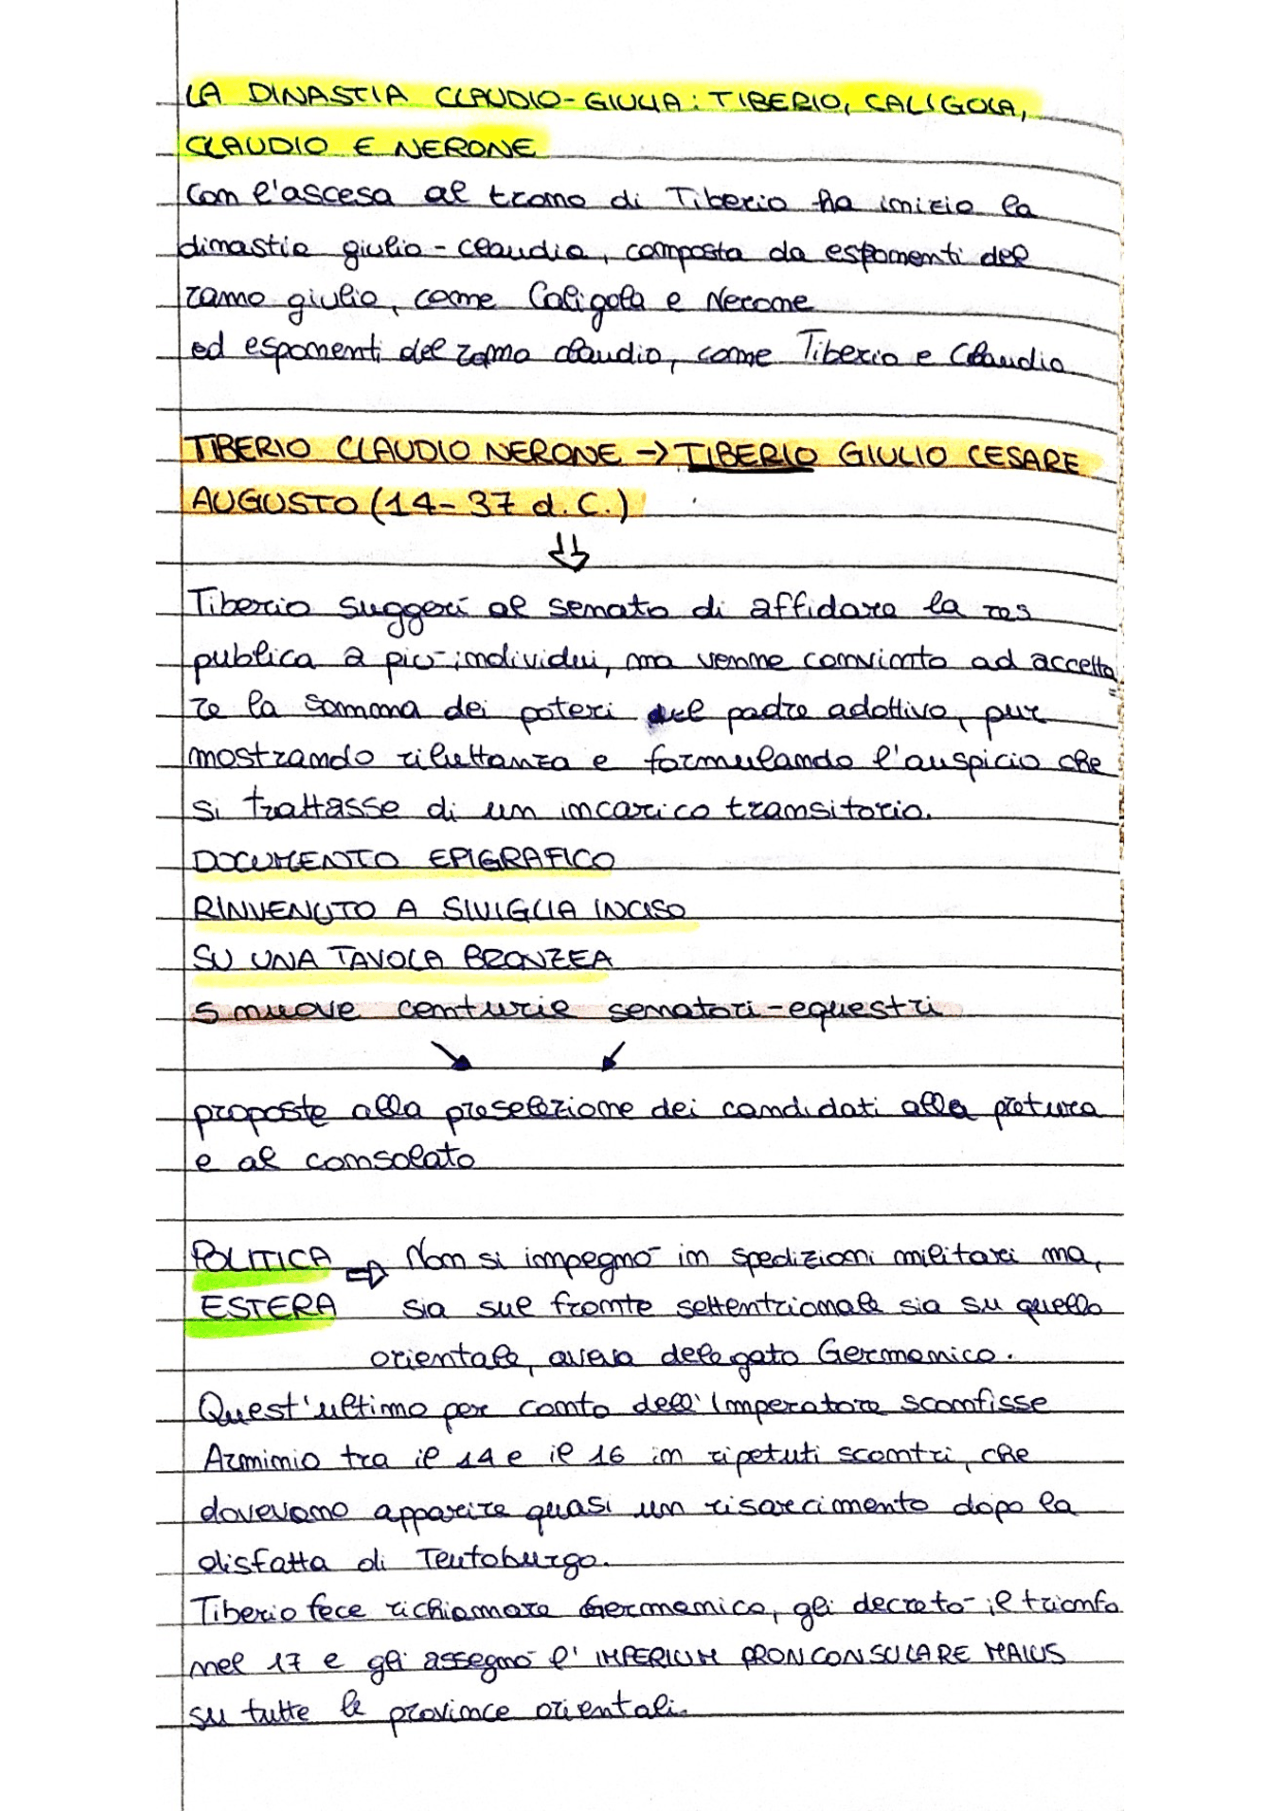 LA DINASTIA CLAUDIO-GIULIA: TIBERIO, CALIGOLA,
CLAUDIO E NERONE
Con l'ascesa al trono di Tiberio ha inizio la
dinastia giulio-claudia, composta da esponenti del
ramo giulio, come Caligola e Nerone
ed esponenti del ramo claudio, come Tiberio e Claudio
TIBERIO CLAUDIO NERONE → TIBERIO GIULIO CESARE
AUGUSTO (14-37 d.C.)
Tiberio suggerì al senato di affidare la res
publica a più individui, ma venne convinto ad accetta
re la somma dei poteri del padre adottivo, pur
mostrando riluttanza e formulando l'auspicio che
si trattasse di un incarico transitorio.
DOCUMENTO EPIGRAFICO
RINVENUTO A SIVIGLIA INCISO
SU UNA TAVOLA BRONZEA
5 nuove centurie senatori-equestri
proposte alla preselezione dei candidati alla pretura
e al consolato
POLITICA ⇒ Non si impegnò in spedizioni militari ma,
ESTERA sia sul fronte settentrionale sia su quello
orientale, aveva delegato Germanico.
Quest'ultimo per conto dell'Imperatore sconfisse
Arminio tra il 14 e il 16 in ripetuti scontri, che
dovevano apparire quasi un risarcimento dopo la
disfatta di Teutoburgo.
Tiberio fece richiamare Germanico, gli decretò il trionfo
nel 17 e gli assegnò l'IMPERIUM PRONCONSULARE MAIUS
su tutte le province orientali.